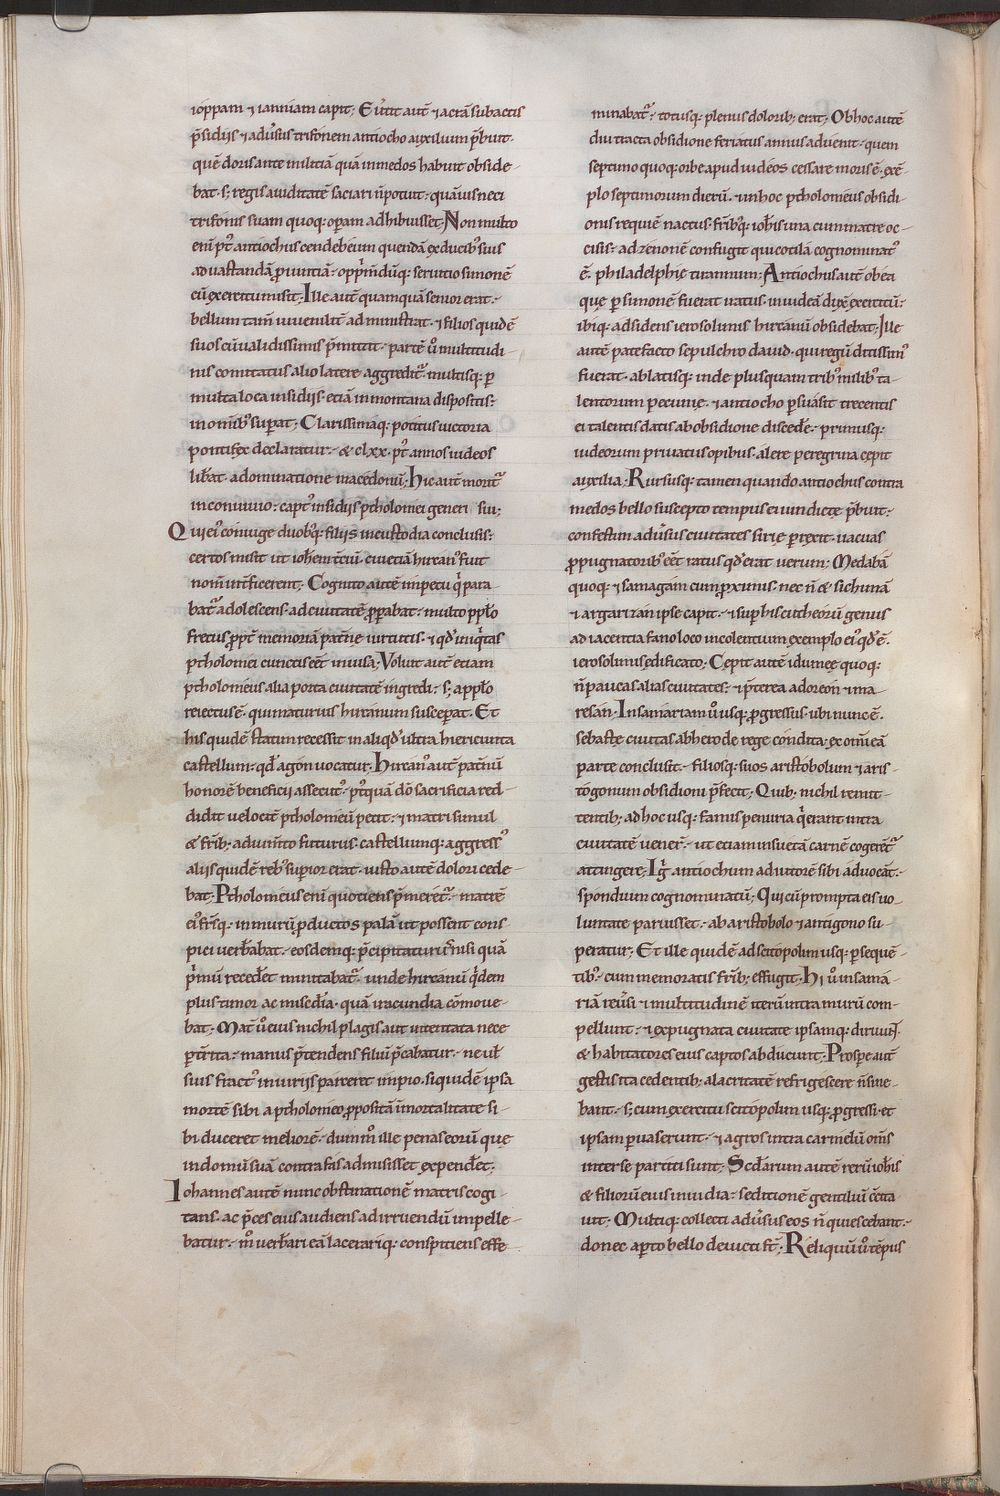 ioppam ⁊ ianniam capit; Eu̾tit autē ⁊ acrā subactis
p̄sidiis ⁊ adu̾sus trifonem antiocho auxilium p̄buit.
quē doris ante militiā quā in medos habuit obside-
bat. s; regis auiditatē saciari ñ potuit. quāuis neci
trifonis suam quoq; op̱am adhibuisset; Non multo
eni pꝰt antiochus cendebeum quendā ex ducibꝰ suis
ad uastandā ꝓuintiā. opp̄m̄dūq; seruitio simonē
cū exercitu misit; Ille autē quamquā senior erat.
bellum tam̄ iuuenilit̄ administrat. ⁊ filios quidē
suos cū ualidissimis p̄mittit. partē ū multitudi-
nis comitatus alio latere aggreditᷣ. multisq; p̱
multa loca insidiis. eciā in montana dispositis.
in om̄ibꝰ sup̱at; Clarissimaq; potitus uictoria
pontifex declaratur. & clxx. pꝰt annos iudeos
lib̄at. a dominatione macedonū; Hic aut̄ moritᷣ
in conuiuio. captꝰ insidiis ptholomei generi sui;
Qui eiꝰ coniuge duobꝰq; filiis in custodia conclusis.
certos misit ut ioh̄em tc̄iū. cui eciā hircanꝰ fuit
nom̄ int̄ficerent; Cognito autē impetu q̄ para
batᷣ adolescens. ad ciuitatē ꝓp̱abat. multo pp̄lo
fretus ꝓpt̄ memoriā pat̄ne uirtutis. ⁊ qd̕ iniq̄tas
ptholomei cunctis eēt inuisa; Voluit autē eciam
ptholomeus alia porta ciuitatē ingredi. s; a pp̄lo
reiectus ē. qui maturius hircanum suscep̱at. Et
his quidē statim recessit in aliqd̕ ultra hiericunta
castellum. qd̕ agon uocatur; Hircanꝰ aut̄ pat̄nū
honorē beneficii assecutꝰ. pꝰt quā dō sacrificia red-
didit uelocit̄ ptholomeū petit. ⁊ matri simul
& fr̄ib; adium̄to futurus. castellumq; aggressꝰ
aliis quidē rebꝰ sup̱ior erat. iusto autē dolori cede-
bat; Ptholomeus eni quotiens p̄meret̄. matrē
eiꝰ fr̄s̄q; in murū ꝓductos palā ut possent cons
pici uerb̄abat. eosdemq; p̄cipitaturū nisi quā
p̄mū recedet minitabatᷣ. unde hircanū q̄dem
plus timor ac mis̄edīa. quā iracundia cōmoue-
bat; Mat̄ ū eius nichil plagis aut intentata nece
p̱t̄rita. manus p̄tendens filiū p̄cabatur. ne ul̄
suis fractꝰ iniuriis parceret impio. siquidē ipsa
mortē sibi a ptholomeo ꝓpositā īmortalitate si-
bi duceret meliorē. dum m̊ ille penas eorū que
in domū suā contra fas admisisset expendet;
Iohannes autē nunc obstinationē matris cogi-
tans. ac p̄ces eius audiens ad irruendū impelle-
batur. m̊ uerb̄ari eā lacerariq; conspitiens effe
minabatᷣ. totusq; plenus dolorib; erat; Ob hoc autē
diu tracta obsidione feriatus annus aduenit. quem
septimo quoq; orbe apud iudeos cessare moris ē. exē-
plo septimorum dierū. ⁊ in hoc ptholomeus obsidi-
onis requiē nactus. fr̄ibꝰq; ioh̄is una cum matre oc-
cisis. ad zenonē confugit qui cotila cognominatꝰ
ē. philadelphie tirannum; Antiochus autē ob ea
que p̱ simonē fuerat uatus. in iudeā dux̄ exercitū.
ibiq; adsidens ierosolimis hircanū obsidebat; Ille
autē patefacto sepulchro dauid. qui regū ditissimꝰ
fuerat. ablatisq; inde plus quam tribꝰ milibꝰ ta-
lentorum pecunie. ⁊ antiocho p̱suasit trecentis
ei talentis datis ab obsidione discedere. primusq;
iudeorum priuatus opibus. alere peregrina cepit
auxilia; Rursusq; tamen quando antiochus contra
medos bello suscepto tempus ei uindicte p̄buit.
confestim adu̾sus ciuitates sirie p̱rexit. uacuas
ꝓpugnatoribꝰ eēt ratus qd̕ erat uerum; Medabā
quoq; ⁊ samagam cum ꝓximis. nec ñ & sichimā
⁊ argarizan ipse capit. ⁊ sup̱ his cutheorū genus
adiacentia fano loco incolentium. exemplo eiꝰ qd̕ ē
ierosolimis edificato; Cepit autē idumee quoq;
ñ paucas alias ciuitates. ⁊ p̄terea adoreon ⁊ ma-
resan; In samariam ū usq; ꝓgressus. ubi nunc ē
sebaste ciuitas ab herode rege condita. ex om̄i eā
parte conclusit. filiosq; suos aristobolum ⁊ aris-
togonum obsidioni p̄fecit; Quib; nichil remit-
tentib; ad hoc usq; famis penuria q̄ erant intra
ciuitatē uener̄. ut eciam insuetā carnē cogeretᷣ
attingere; Igͥ antiochum adiutorē sibi aduocāt.
spondium cognominatū; Qui cū prompta eis uo-
luntate paruisset. ab aristobolo ⁊ antigono su-
peratur; Et ille quidē ad scitopolim usq; p̱sequē-
tibꝰ cum memoratis fr̄ib; effugit; Hi ū in sama-
riā reu̾si ⁊ multitudinē iterū intra murū com-
pellunt. ⁊ expugnata ciuitate ipsamq; diruunt.
& habitatores eius captos abducunt; Prospe aut̄
gestis ita cedentib; alacritatē refrigescere ñ sine-
bant. s; cum exercitu scitopolim usq; ꝓgressi. et
ipsam p̱uaserunt. ⁊ agros intra carmelū om̄s
inter se partiti sunt; Scd̄arum autē rerū ioh̄is
& filiorū eius inuidia. seditionē gentiliū c̄cita-
uit; Multiq; collecti adu̾sus eos ñ quiescebant.
donec ap̱to bello deuicti st̄; Reliquū ū tēpus